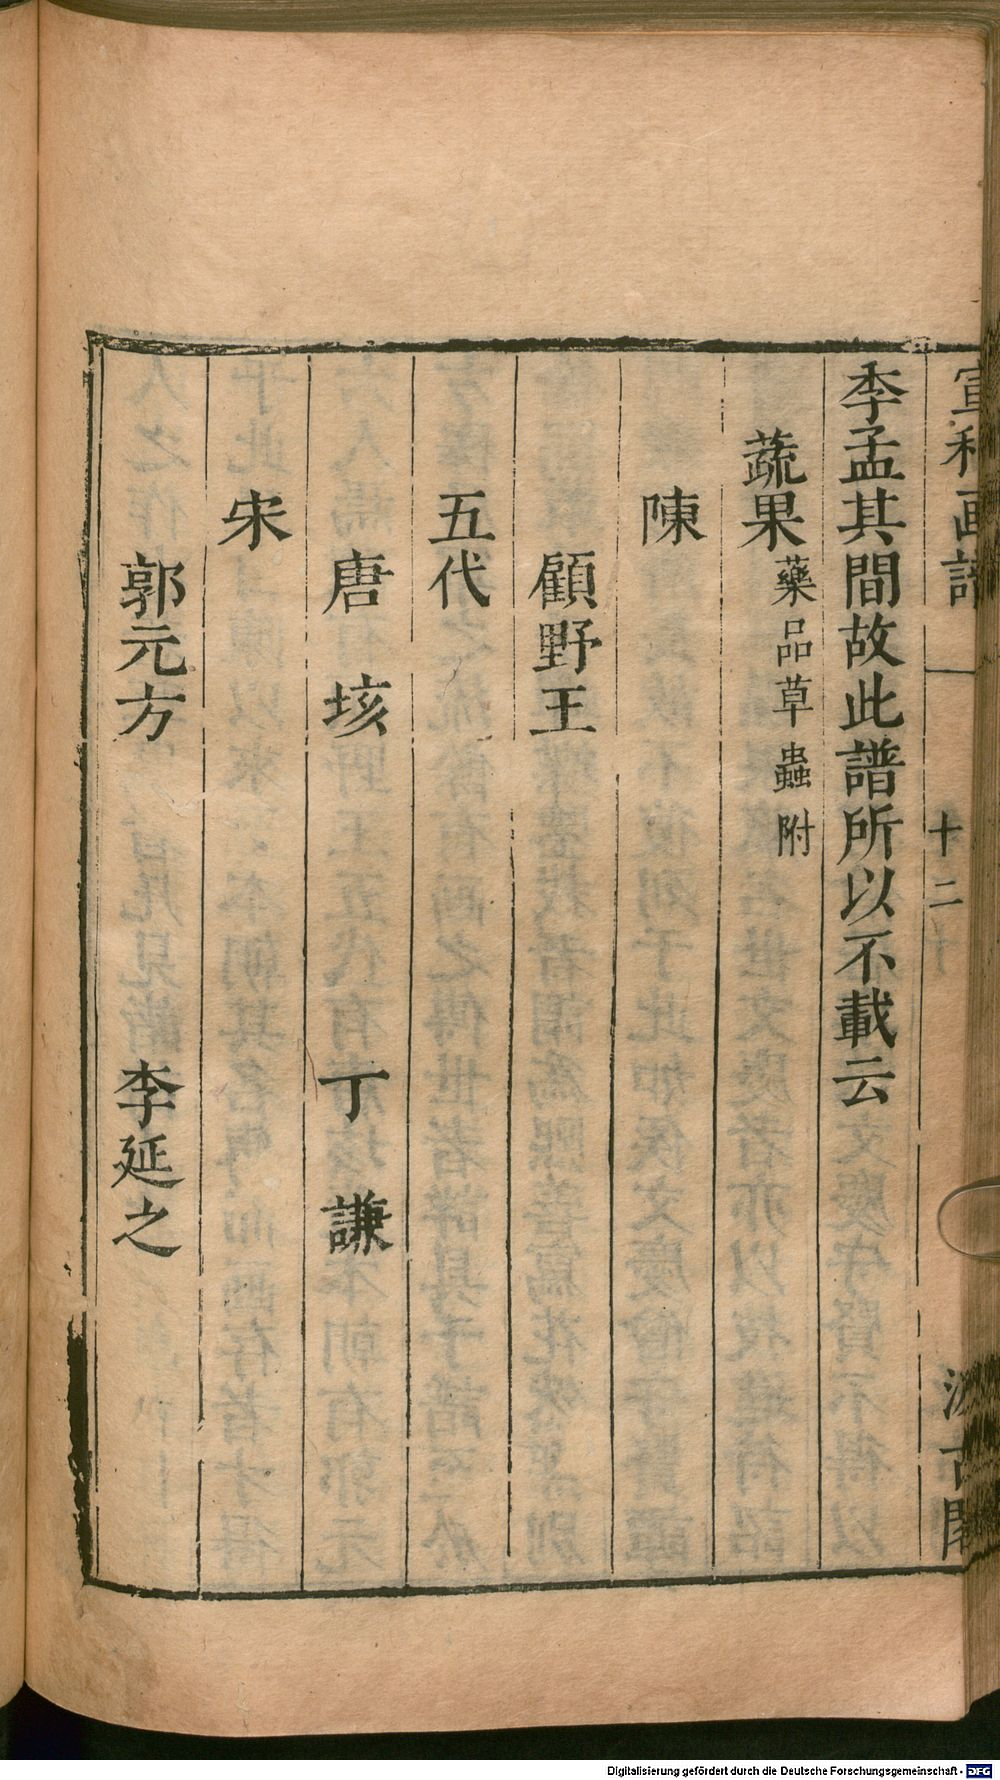 宣和画譜 十二 汲古閣
李孟其間故此譜所以不載云
蔬果 藥品草蟲附
陳
顧野王
五代
唐垓 丁謙
宋
郭元方 李延之
Digitalisierung gefördert durch die Deutsche Forschungsgemeinschaft - DFG